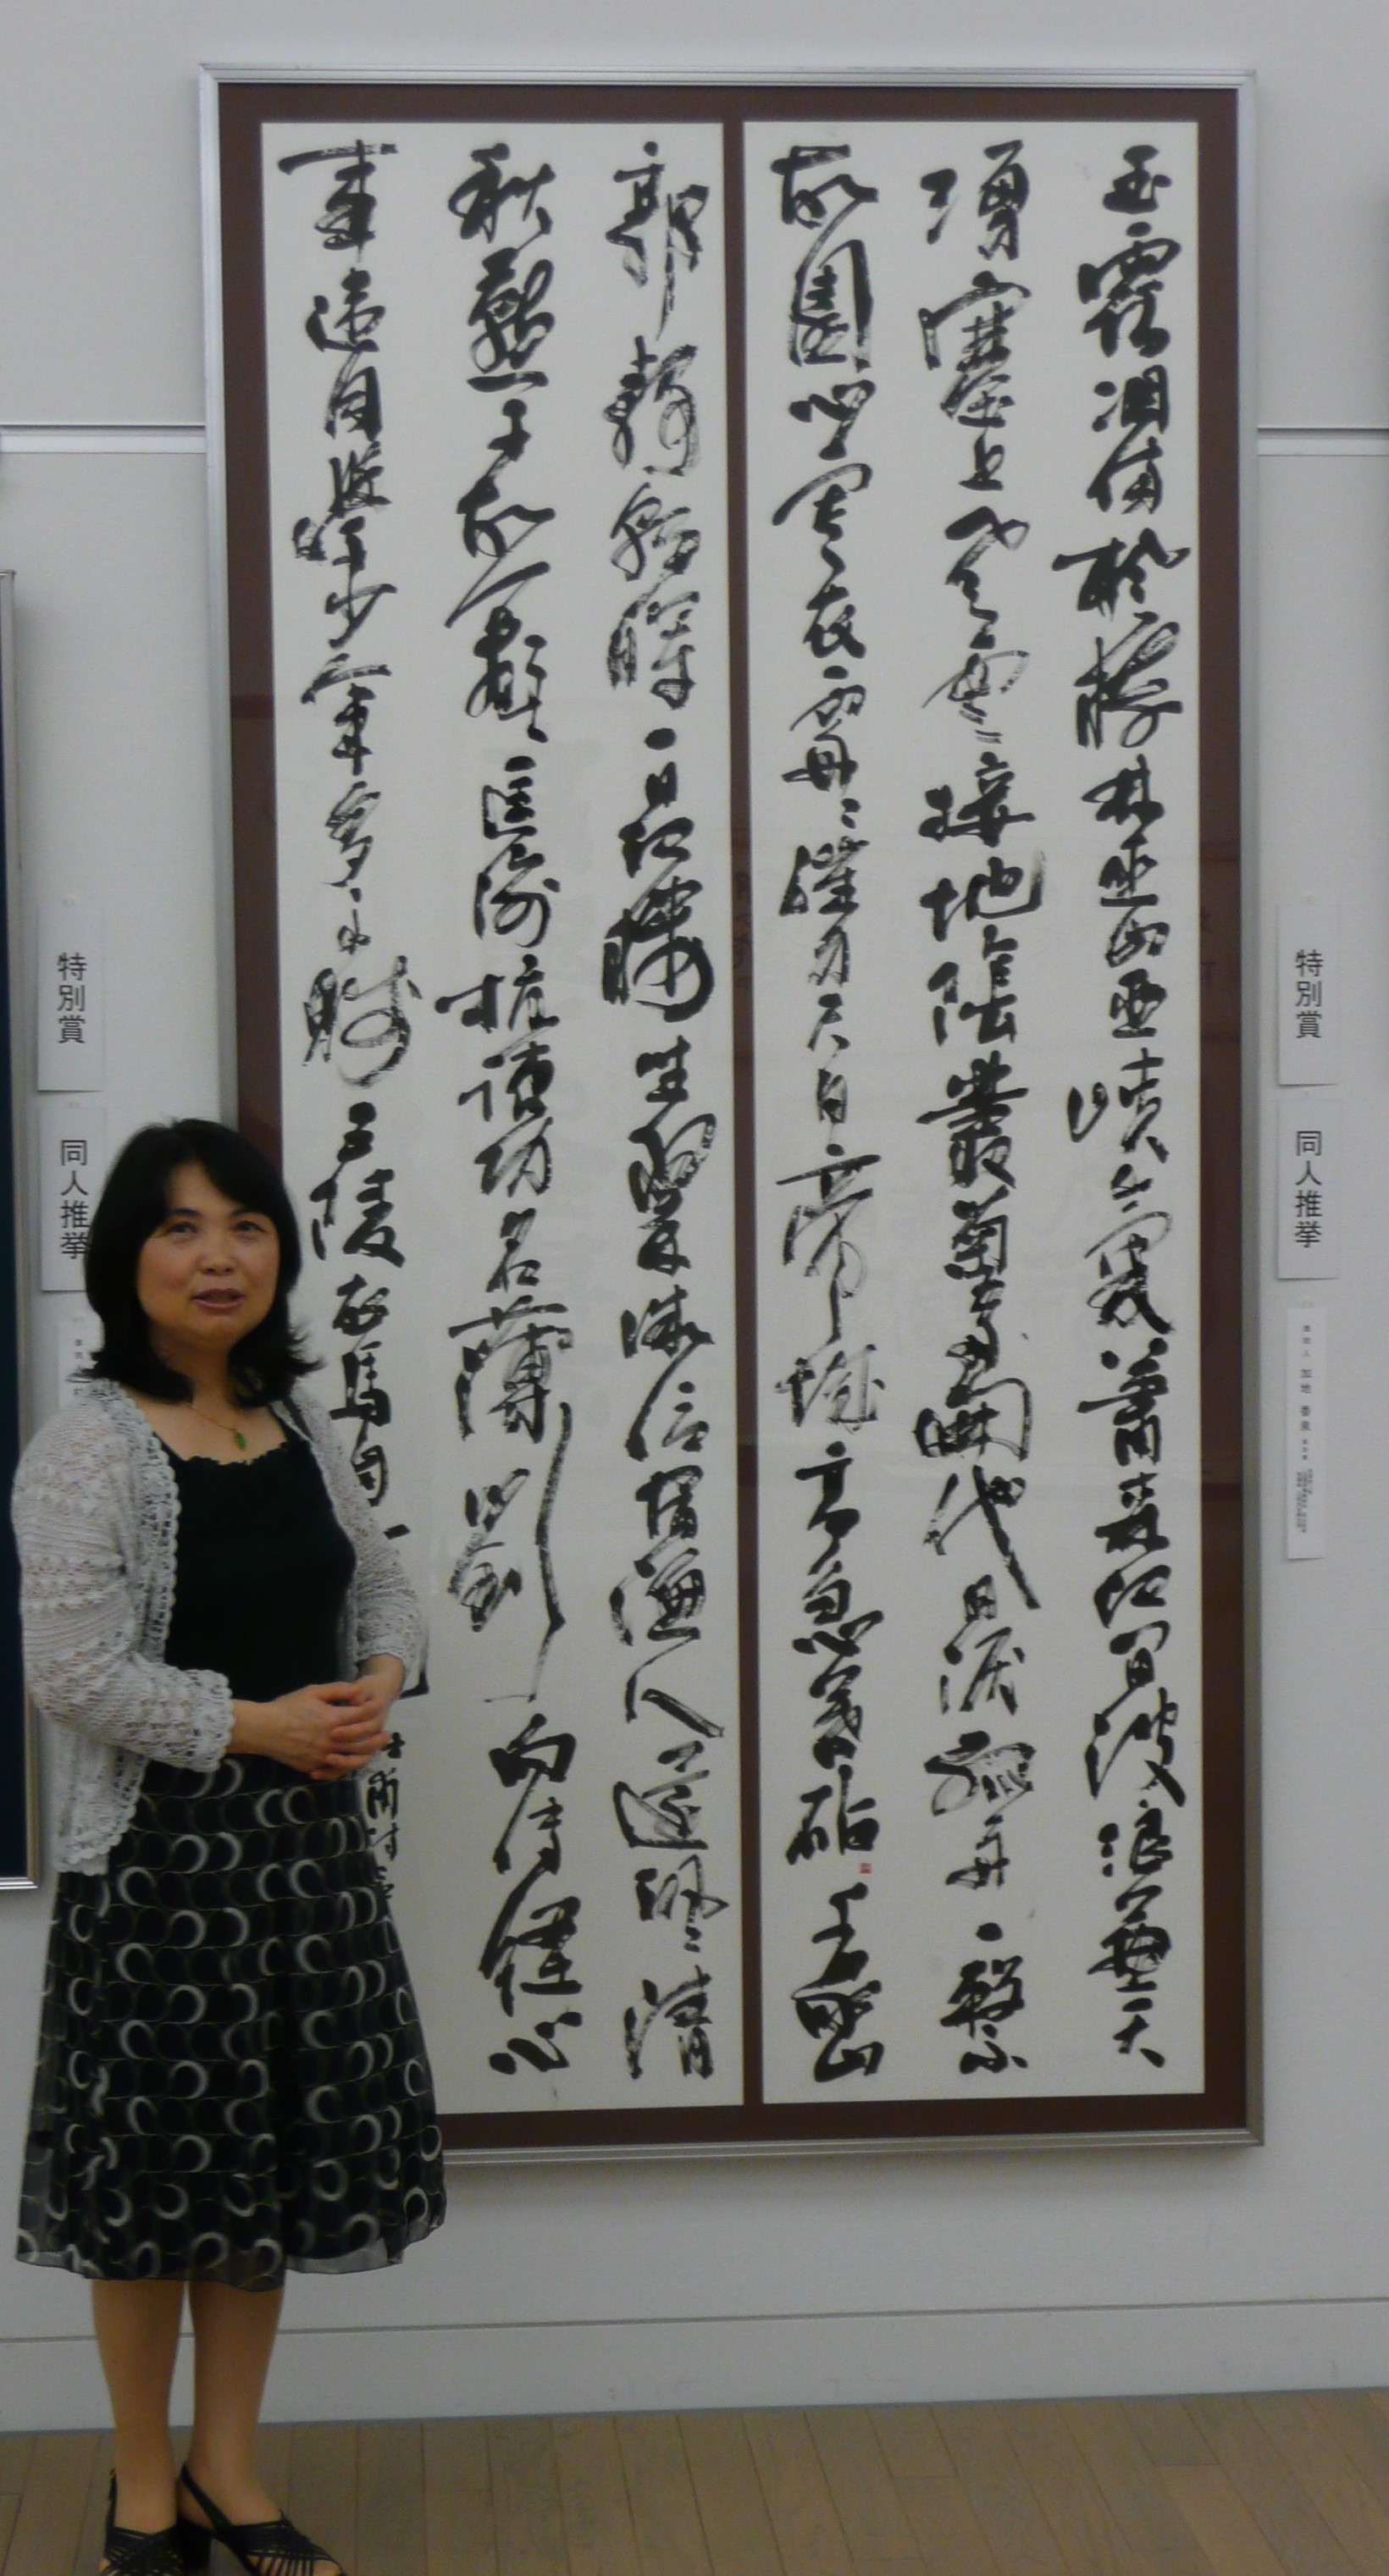 特別賞
同人推挙
加地
玉露凋傷楓樹林巫山巫峽氣蕭森江間波浪兼天
湧塞上風雲接地陰叢菊兩開他日淚孤舟一繫
故園心寒衣處〻催刀尺白帝城高急暮砧千家山
郭靜朝暉一日江樓坐翠微信宿漁人還泛〻清
秋燕子故飛〻匡衡抗疏功名薄劉向傳經心
事違同學少年多不賤五陵衣馬自
特別賞
同人推挙